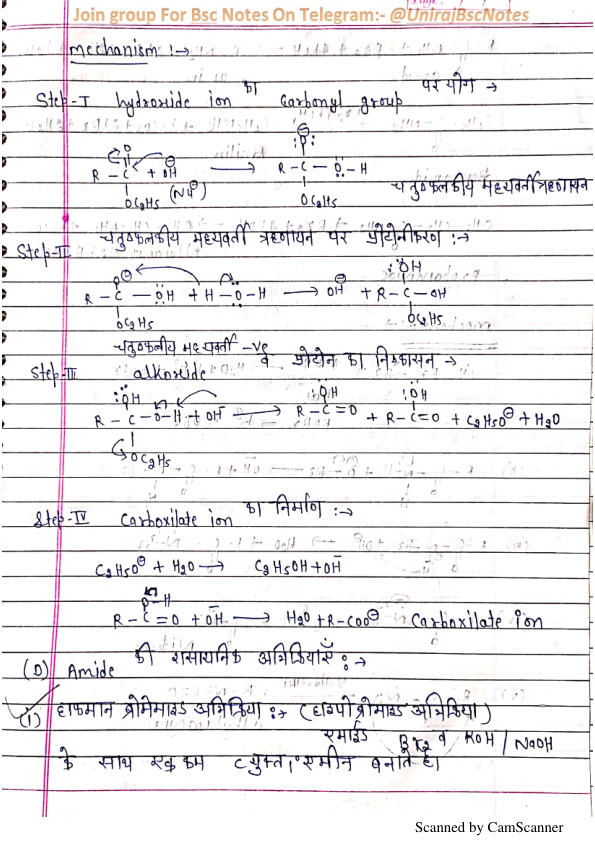 Join group For Bsc Notes On Telegram:- @UnirajBscNotes
mechanism :→
Step-I hydroxide ion का Carbonyl group पर योग →
O
R - C + OH ⊖ → R - C - Ö - H
OC2H5 (Nu⊖) OC2H5
चतुष्फलकीय मध्यवर्ती ऋणायन
Step-II चतुष्फलकीय मध्यवर्ती ऋणायन पर प्रोटोनीकरण :→
O⊖ :ÖH
R - C - ÖH + H - O - H → OH⊖ + R - C - OH
OC2H5 OC2H5
चतुष्फलकीय मध्यवर्ती -ve
Step-III alkoxide व प्रोटोन का निष्कासन →
:ÖH ÖH :ÖH
R - C - O - H + OH → R - C = O + R - C = O + C2H5O⊖ + H2O
OC2H5
Step-IV Carboxilate ion का निर्माण :→
C2H5O⊖ + H2O → C2H5OH + OH
O - H
R - C = O + OH → H2O + R-COO⊖ Carboxilate ion
(D) Amide की रासायनिक अभिक्रियाएँ :→
(1) हाफमान ब्रोमेमाइड अभिक्रिया :→ (हाइपो ब्रोमाइड अभिक्रिया)
एमाईड Br2 व KOH / NaOH
के साथ एक कम C युक्त 1° एमीन बनाते है।
Scanned by CamScanner